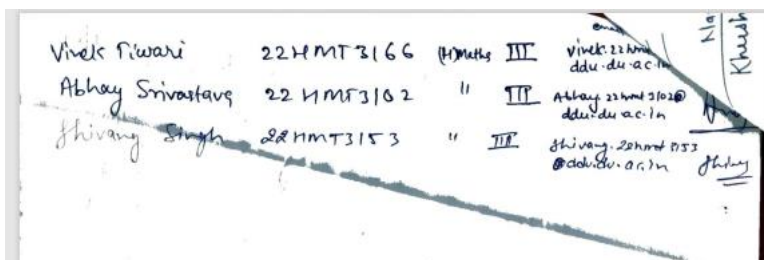 email
Vivek Tiwari 22HMT3166 (H)Maths III vivek.22hmt
ddu.du.ac.in
Abhay Srivastava 22HMT3102 " III Abhay.22hmt3102@
ddu.du.ac.in
Shivang Singh 22HMT3153 " III shivang.22hmt3153
@ddu.du.ac.in
Khush